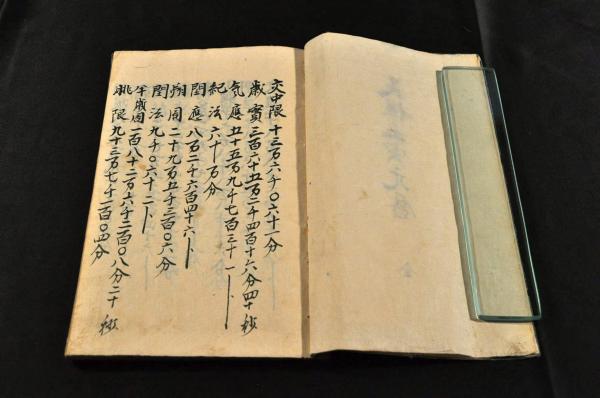 交中限 十三万六千〇六十一分
歳實 三百六十五万二千四百十六分四十秒
気應 五十五万九千七百三十一分
紀法 六十万分
閏應 八万二千六百四十六分
朔周 二十九万五千三百〇六分
閏法 九千〇六十二分
半歳周 一百八十二万六千二百〇八分二十秒
朓限 九十三万七千一百〇四分